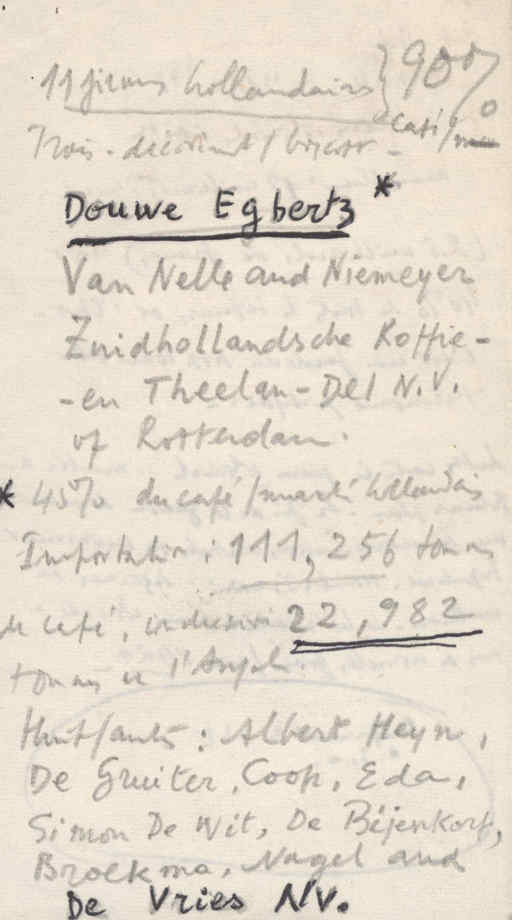 11 firmes hollandaises } 90%
café/
Trois
Douwe Egbertz *
Van Nelle and Niemeyer
Zuidhollandsche Koffie-
-en Theelan-Del N.V.
of Rotterdam.
* 45% du café/marché hollandais
Importation : 111,256 tonnes
de café, inclusivi 22,982
tonnes de l'Angola
Huit/autres : Albert Heyn,
De Gruiter, Coop, Eda,
Simon De Wit, De Bijenkorf,
Broekma, Nagel and
De Vries NV.